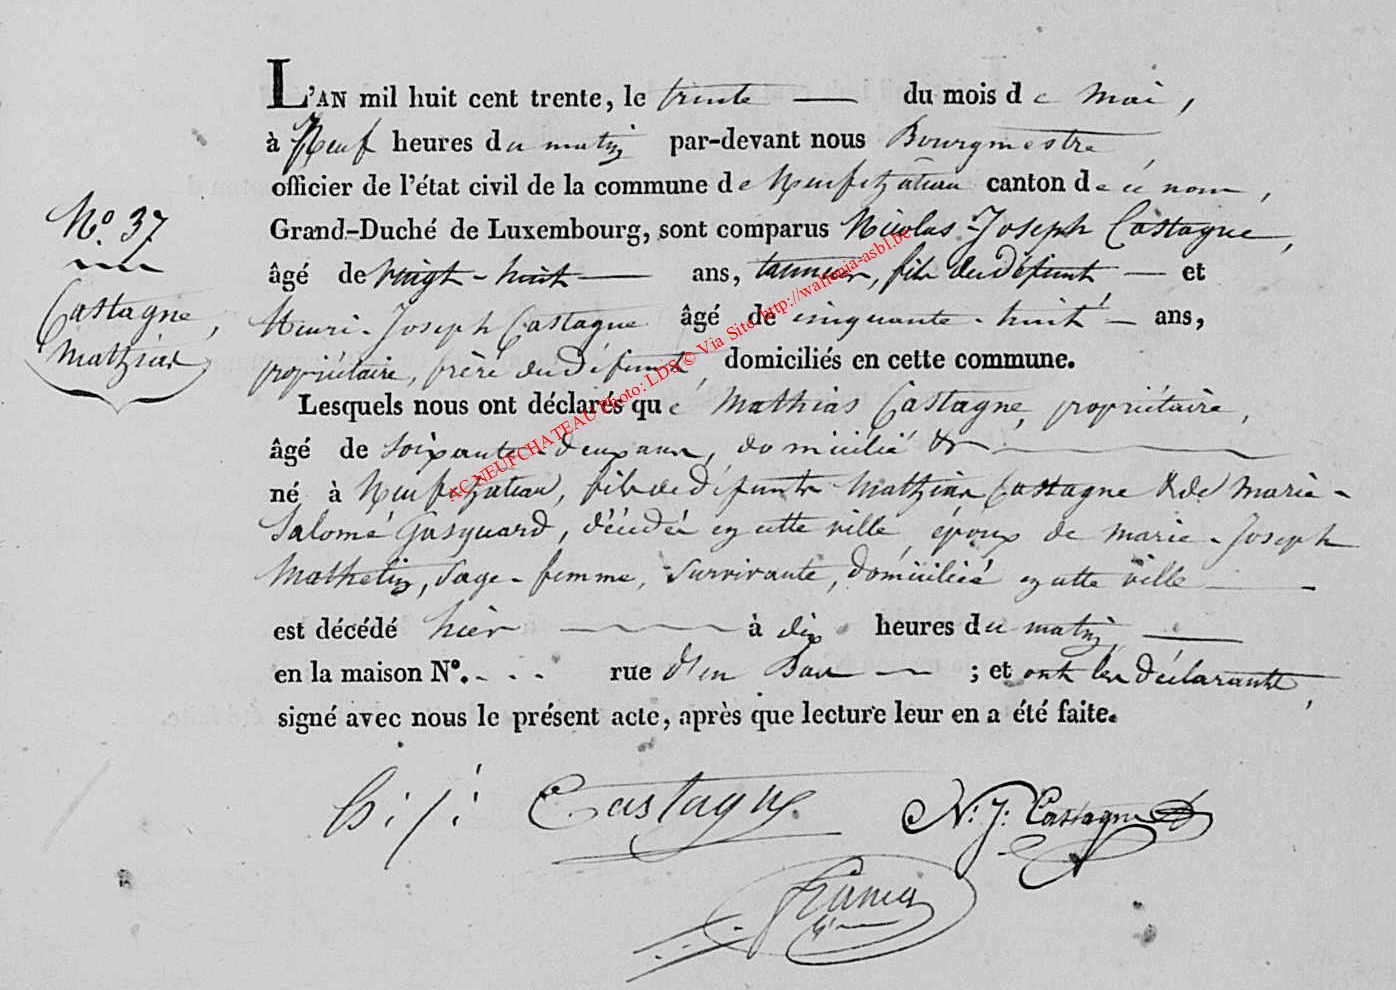 L'AN mil huit cent trente, le trente du mois de Mai,
à Neuf heures du matin par-devant nous Bourgmestre,
officier de l'état civil de la commune de Neufchâteau canton de ce nom,
Grand-Duché de Luxembourg, sont comparus Nicolas-Joseph Castagne,
âgé de vingt-huit ans, tanneur, fils du défunt et
Henri-Joseph Castagne âgé de cinquante-huit ans,
propriétaire, frère du défunt, domiciliés en cette commune.
Lesquels nous ont déclarés que Mathias Castagne, propriétaire,
âgé de soixante-deux ans, domicilié &
né à Neufchâteau, fils de défunts Mathias Castagne & de Marie-
Salomé Gasquard, décédés en cette ville, époux de Marie-Joseph
Mathelin, sage-femme, survivante, domiciliée en cette ville
est décédé hier à dix heures du matin
en la maison N°. - - - rue d'en Bas ; et ont les déclarants,
signé avec nous le présent acte, après que lecture leur en a été faite.
N° 37
Castagne,
Mathias
h: j: Castagne
N: J: Castagne
AC NEUFCHATEAU Photo: LDS © Via Site http://wallonia-asbl.be